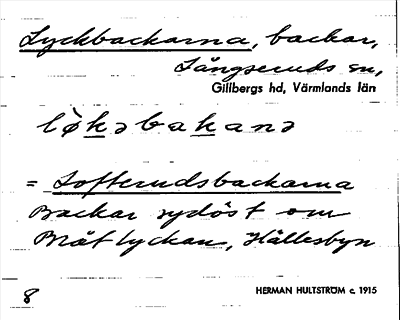 Lyckbackarna, backar,
Långseruds sn,
Gillbergs hd, Värmlands län
lø̀kəbakanə
= Lofterudsbackarna
Backar sydöst om
Måtlyckan, Hällesbyn
8 HERMAN HULTSTRÖM c. 1915